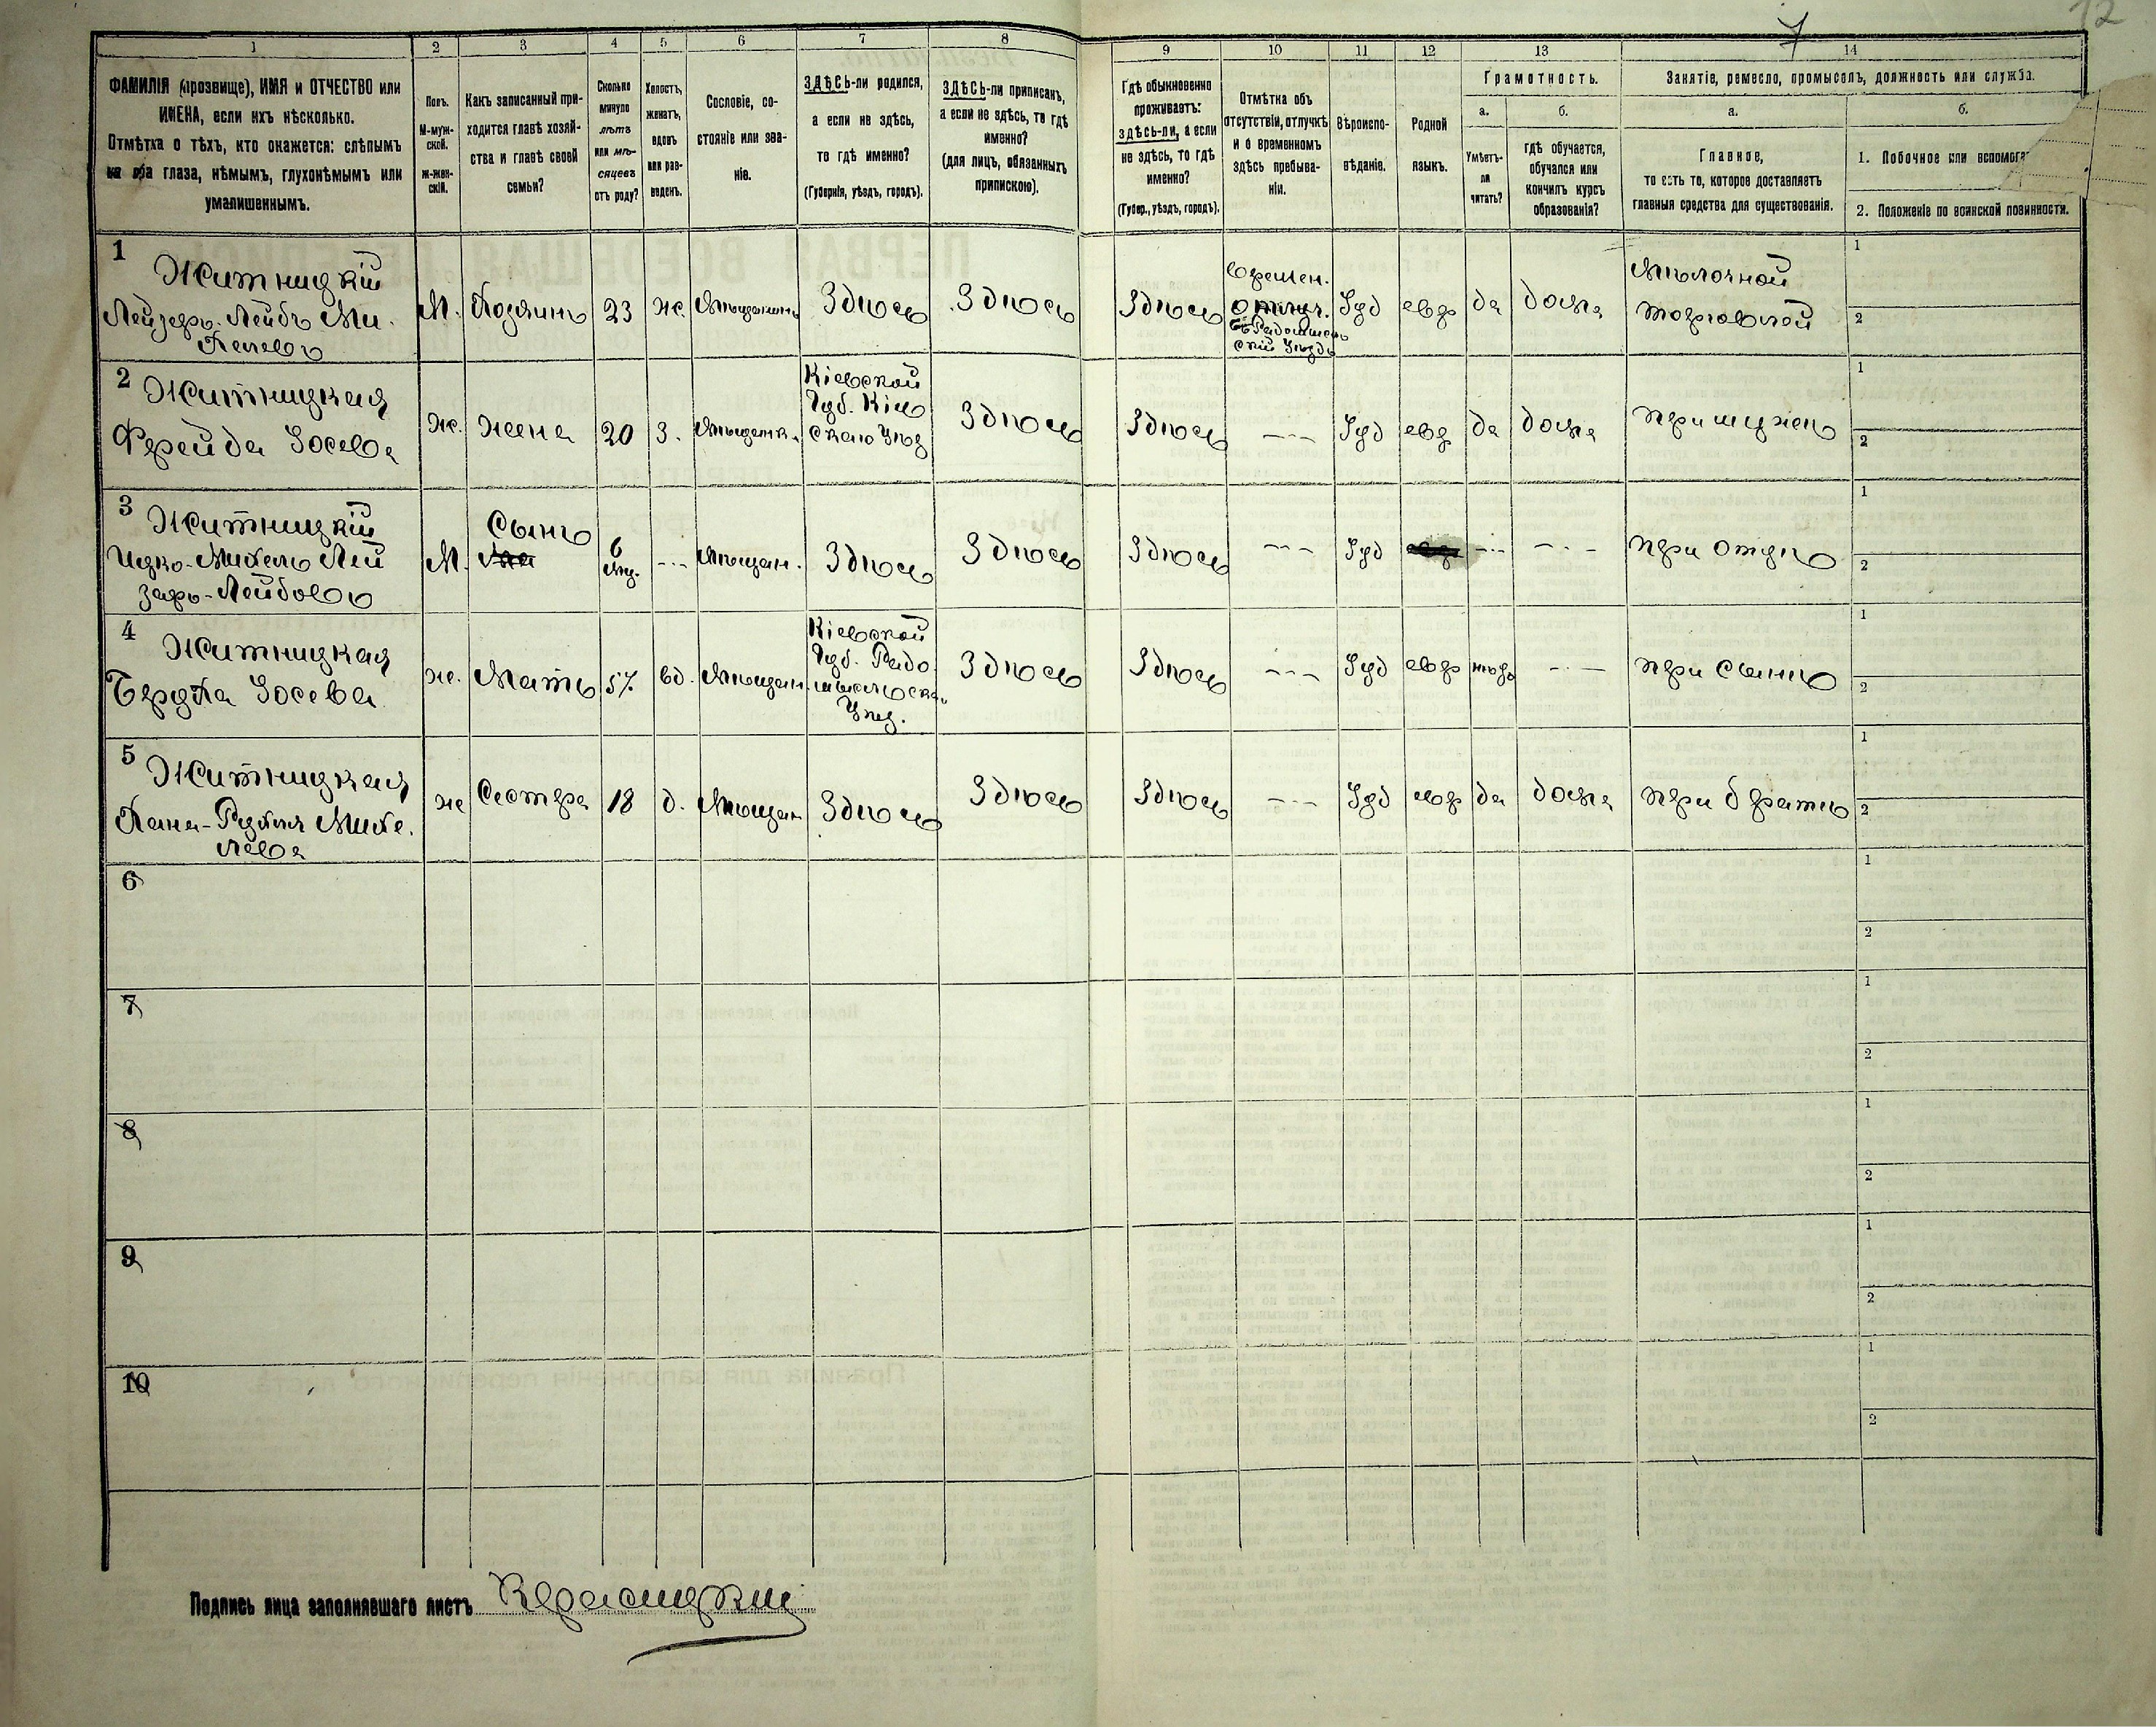 12
7
1 2 3 4 5 6 7 8 9 10 11 12 13 14
ФАМИЛІЯ (прозвище), ИМЯ и ОТЧЕСТВО или
ИМЕНА, если ихъ нѣсколько.
Отмѣтка о тѣхъ, кто окажется: слѣпымъ
на оба глаза, нѣмымъ, глухонѣмымъ или
умалишеннымъ.
Полъ.
М-муж-
ской.
ж-жен-
скій.
Какъ записанный при-
ходится главѣ хозяй-
ства и главѣ своей
семьи?
Сколько
минуло
лѣтъ
или мѣ-
сяцевъ
отъ роду?
Холостъ,
женатъ,
вдовъ
или раз-
веденъ.
Сословіе, со-
стояніе или зва-
ніе.
ЗДѢСЬ-ли родился,
а если не здѣсь,
то гдѣ именно?
(Губернія, уѣздъ, городъ).
ЗДѢСЬ-ли приписанъ,
а если не здѣсь, то гдѣ
именно?
(для лицъ, обязанныхъ
припискою).
Гдѣ обыкновенно
проживаетъ:
здѣсь-ли, а если
не здѣсь, то гдѣ
именно?
(Губер., уѣздъ, городъ).
Отмѣтка объ
отсутствіи, отлучкѣ
и о временномъ
здѣсь пребыва-
ніи.
Вѣроиспо-
вѣданіе.
Родной
языкъ.
Грамотность.
а.
Умѣетъ-
ли
читать?
б.
гдѣ обучается,
обучался или
кончилъ курсъ
образованія?
Занятіе, ремесло, промыселъ, должность или служба.
а.
Главное,
то есть то, которое доставляетъ
главныя средства для существованія.
б.
1. Побочное или вспомога
2. Положеніе по воинской повинности.
1
Житницкій
Лейзеръ-Лейбъ Ми-
хелевъ
М.
Хозяинъ
23
ж.
Мѣщанинъ
Здѣсь
Здѣсь
Здѣсь
времен.
отлуч.
въ Радомысль
скій Уѣздъ
Іуд
евр
да
дома
Мѣлочной
торговлей
1
2
2
Житницкая
Фрейда Іосева
ж.
жена
20
з.
Мѣщанка
Кіевской
Губ. Кіев
скаго Уѣз
Здѣсь
Здѣсь
Іуд
евр
да
дома
при мужѣ
1
2
3
Житницкій
Ицко-Михель Лей
зеръ-Лейбовъ
М.
Сынъ
6
мѣ.
Мѣщан.
Здѣсь
Здѣсь
Здѣсь
Іуд
при отцѣ
1
2
4
Житницкая
Бруха Іосева
ж.
Мать
57
вд.
Мѣщан.
Кіевской
Губ. Радо
мысльска.
Уѣз.
Здѣсь
Здѣсь
Іуд
евр
при сынѣ
1
2
5
Житницкая
Хана-Рухля Михе.
лева
ж
Сестра
18
д.
Мѣщан
Здѣсь
Здѣсь
Здѣсь
Іуд
евр
да
дома
при братѣ
1
2
6
1
2
7
1
2
8
1
2
9
1
2
10
1
2
Подпись лица заполнявшаго листъ